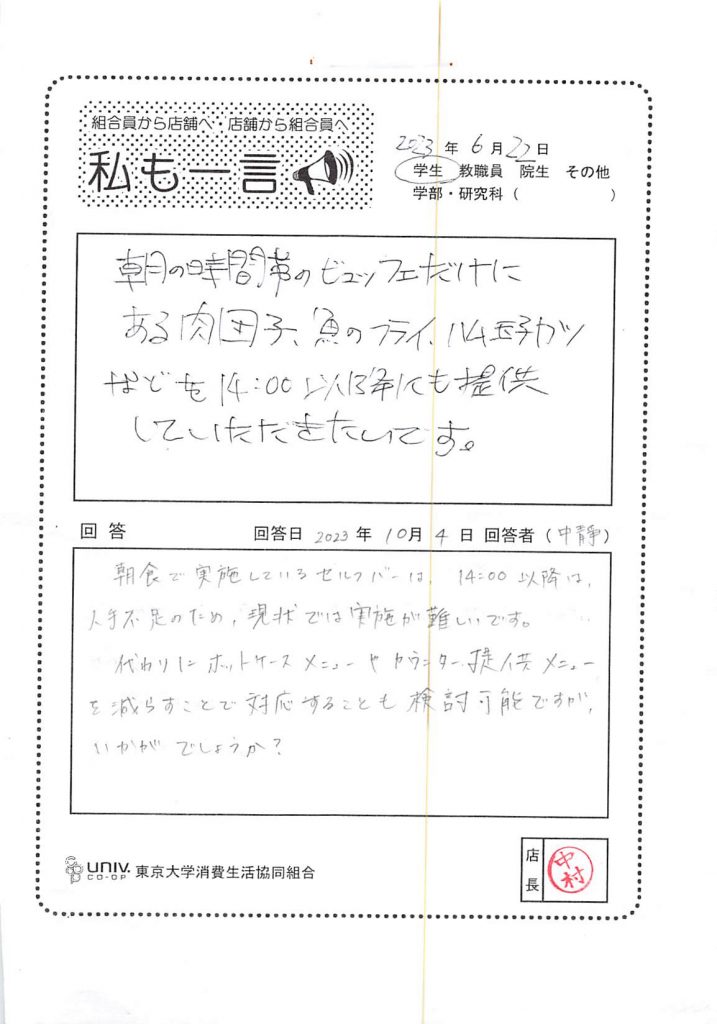 組合員から店舗へ・店舗から組合員へ
私も一言
2023年6月22日
学生 教職員 院生 その他
学部・研究科(　　　)
朝の時間帯のビュッフェだけに
ある肉団子、魚のフライ、ハム玉子カツ
などを14:00以降にも提供
していただきたいです。
回答 回答日 2023年10月4日 回答者(中靜)
朝食で実施しているセルフバーは、14:00以降は、
人手不足のため、現状では実施が難しいです。
代わりにホットケースメニューやカウンター提供メニュー
を減らすことで対応することも検討可能ですが、
いかがでしょうか?
UNIV. CO-OP 東京大学消費生活協同組合
店長
中村